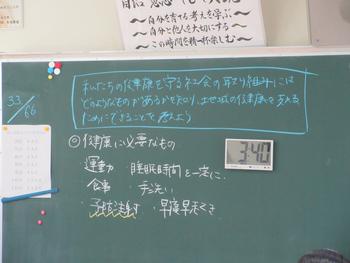 〜自分を育てる考えを学ぶ〜
〜自分と他人を大切にする〜
〜この時間を精一杯楽しむ〜
33/66
私たちの健康を守る社会の取り組みには
どのようなものがあるかを知り、地域の健康を支える
ためにできることを考えよう
◎健康に必要なもの
運動 睡眠時間を一定に
食事 手洗い
予防注射 早寝早起き
3:40